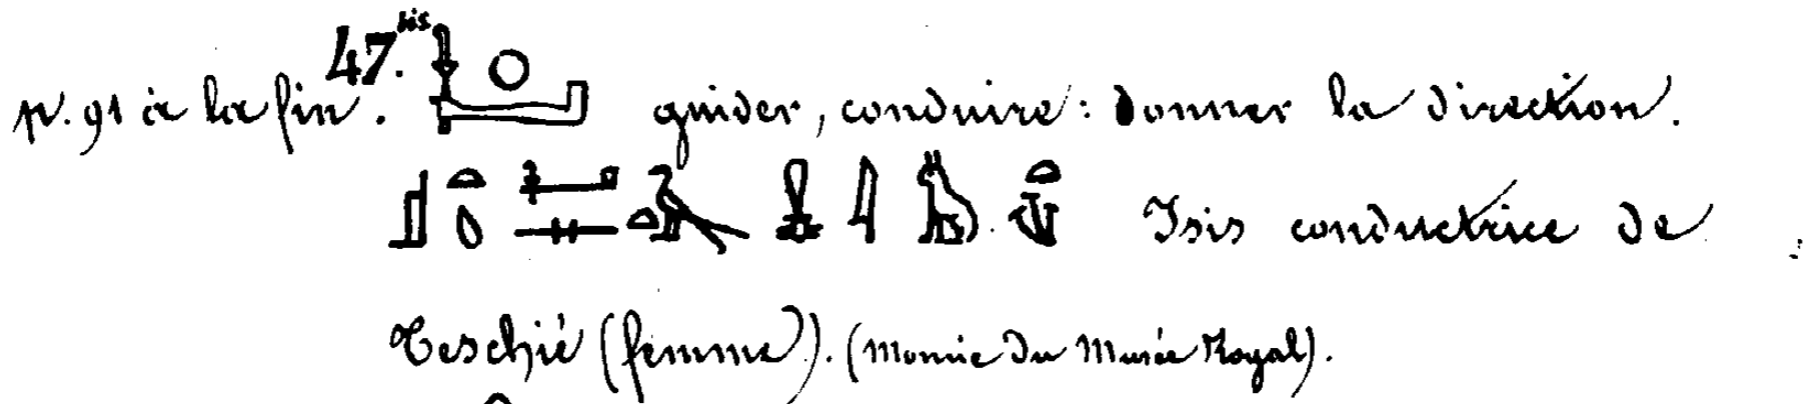 47.bis
p. 91 à la fin. guider, conduire: donner la direction.
Isis conductrice de
Teschié (femme). (Momie du Musée Royal).